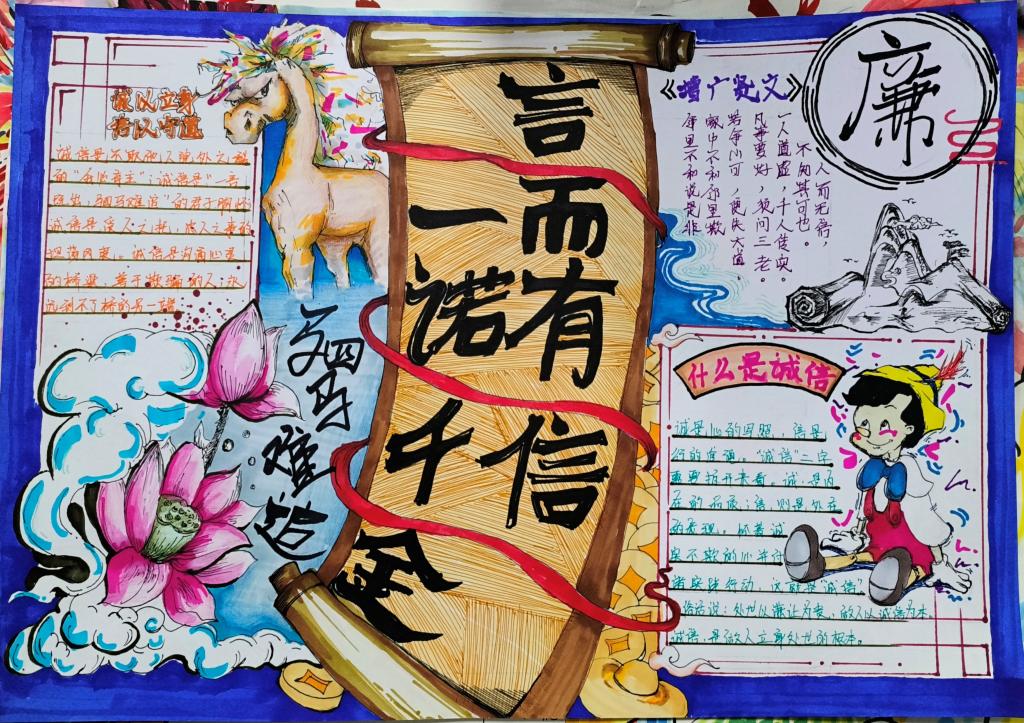 言而有信
一诺千金
驷马难追
诚以立身
信以守道
诚信是不欺他人独处之秘
出，驷马难追"的君子胸怀
诚信是沟通心灵
的桥梁，善于欺骗的人，永
远到不了桥的另一端
《增广贤文》
人而无信，
不知其可也。
一人道虚，千人传实
凡事要好，须问三老。
若争小可，便失大道。
家中不和邻里欺
邻里不和说是非
廉
什么是诚信
诚是心的写照，信是
行的准遁。"诚信"二字
要要拆开来看。诚，是内
在的品质；信，则是外在
的表现。怀着诚
实不欺的心并付
诸实践行动，这就是"诚信"
俗话说：处世以谦让为贵，做人以诚信为本。
诚信，是做人立身处世的根本。